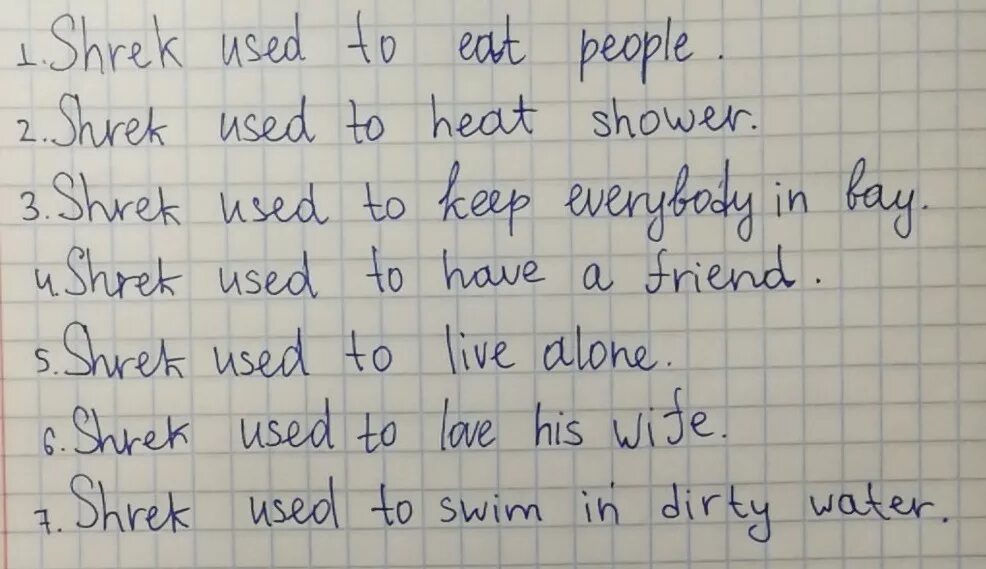 1. Shrek used to eat people.
2. Shrek used to heat shower.
3. Shrek used to keep everybody in bay.
4. Shrek used to have a friend.
5. Shrek used to live alone.
6. Shrek used to love his wife.
7. Shrek used to swim in dirty water.